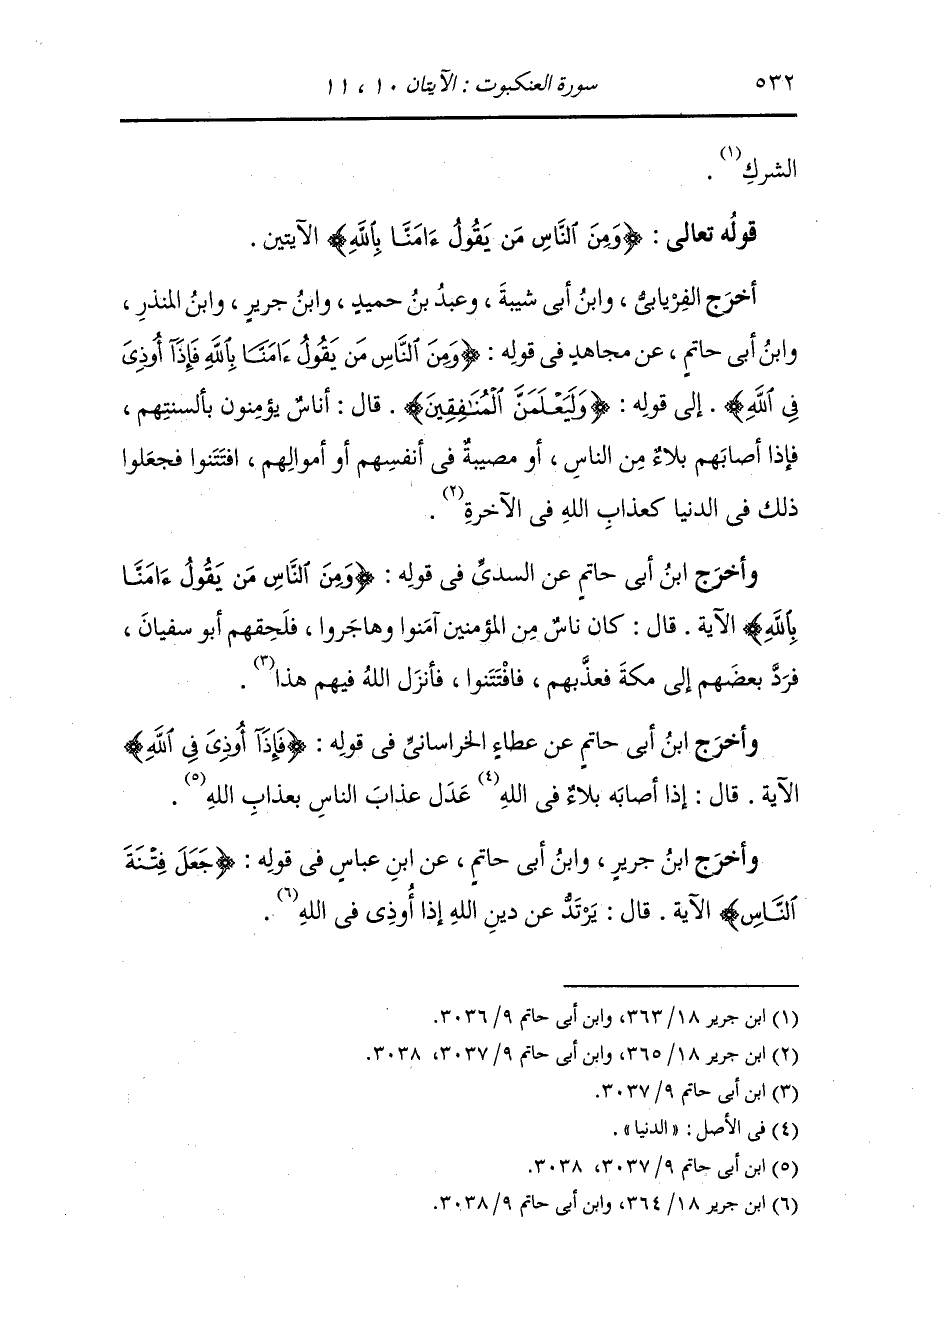 ٥٣٢ سورة العنكبوت : الآيتان ١٠ ، ١١
الشركِ(١) .
قولُه تعالى : ﴿وَمِنَ ٱلنَّاسِ مَن يَقُولُ ءَامَنَّا بِٱللَّهِ﴾ الآيتين .
أخرَج الفِرْيابىُّ ، وابنُ أبى شيبةَ ، وعبدُ بنُ حميدٍ ، وابنُ جريرٍ ، وابنُ المنذرِ ،
وابنُ أبى حاتمٍ ، عن مجاهدٍ فى قولِه : ﴿وَمِنَ ٱلنَّاسِ مَن يَقُولُ ءَامَنَّا بِٱللَّهِ فَإِذَآ أُوذِىَ
فِى ٱللَّهِ﴾ . إلى قولِه : ﴿وَلَيَعْلَمَنَّ ٱلْمُنَٰفِقِينَ﴾ . قال : أناسٌ يؤمِنون بألسنتِهم ،
فإذا أصابَهم بلاءٌ مِن الناسِ ، أو مصيبةٌ فى أنفسِهم أو أموالِهم ، افتَتَنوا فجعَلوا
ذلك فى الدنيا كعذابِ اللهِ فى الآخرةِ(٢) .
وأخرَج ابنُ أبى حاتمٍ عن السدىِّ فى قولِه : ﴿وَمِنَ ٱلنَّاسِ مَن يَقُولُ ءَامَنَّا
بِٱللَّهِ﴾ الآية . قال : كان ناسٌ مِن المؤمنين آمَنوا وهاجَروا ، فلَحِقهم أبو سفيانَ ،
فرَدَّ بعضَهم إلى مكةَ فعذَّبهم ، فافْتَتَنوا ، فأنزَل اللهُ فيهم هذا(٣) .
وأخرَج ابنُ أبى حاتمٍ عن عطاءٍ الخراسانىِّ فى قولِه : ﴿فَإِذَآ أُوذِىَ فِى ٱللَّهِ﴾
الآية . قال : إذا أصابَه بلاءٌ فى اللهِ(٤) عَدَل عذابَ الناسِ بعذابِ اللهِ(٥) .
وأخرَج ابنُ جريرٍ ، وابنُ أبى حاتمٍ ، عن ابنِ عباسٍ فى قولِه : ﴿جَعَلَ فِتْنَةَ
ٱلنَّاسِ﴾ الآية . قال : يَرْتَدُّ عن دينِ اللهِ إذا أُوذِى فى اللهِ(٦) .
(١) ابن جرير ١٨/ ٣٦٣، وابن أبى حاتم ٩/ ٣٠٣٦.
(٢) ابن جرير ١٨/ ٣٦٥، وابن أبى حاتم ٩/ ٣٠٣٧، ٣٠٣٨.
(٣) ابن أبى حاتم ٩/ ٣٠٣٧.
(٤) فى الأصل : «الدنيا» .
(٥) ابن أبى حاتم ٩/ ٣٠٣٧، ٣٠٣٨.
(٦) ابن جرير ١٨/ ٣٦٤، وابن أبى حاتم ٩/ ٣٠٣٨.